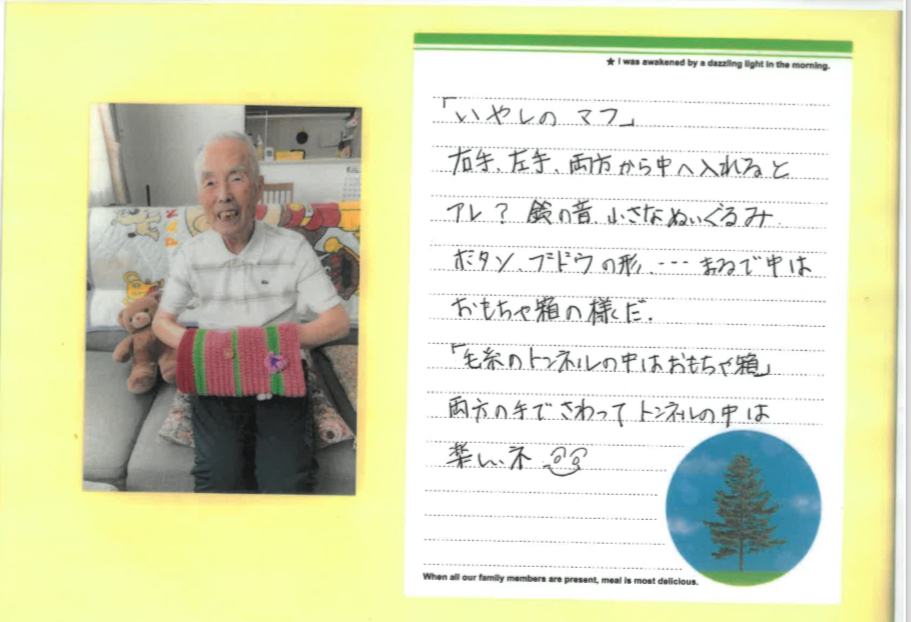 ★ I was awakened by a dazzling light in the morning.
「いやしの マフ」
右手、左手、両方から中へ入れると
アレ? 鈴の音、小さなぬいぐるみ、
ボタン、ブドウの形、・・・まるで中は
おもちゃ箱の様だ。
「毛糸のトンネルの中はおもちゃ箱」
両方の手でさわって トンネルの中は
楽しいネ
When all our family members are present, meal is most delicious.